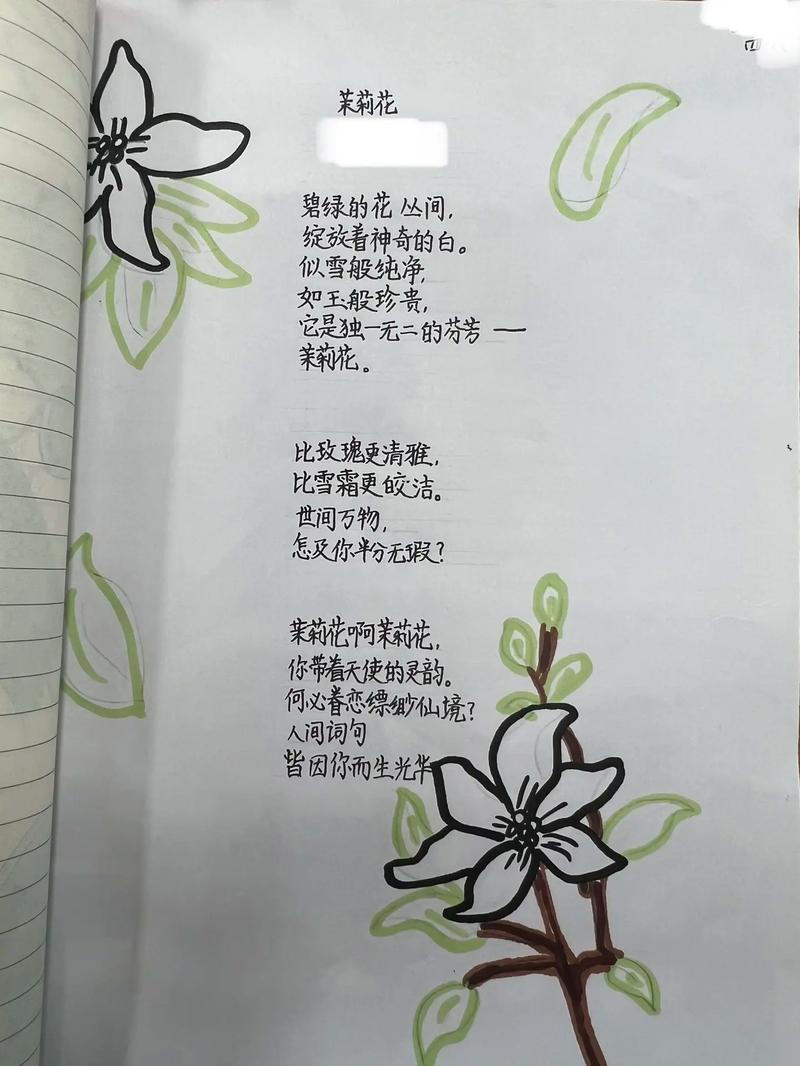 四
茉莉花
碧绿的花丛间，
绽放着神奇的白。
似雪般纯净，
如玉般珍贵，
它是独一无二的芬芳——
茉莉花。
比玫瑰更清雅，
比雪霜更皎洁。
世间万物，
怎及你半分无瑕？
茉莉花啊茉莉花，
你带着天使的灵韵。
何必眷恋缥缈仙境？
人间词句
皆因你而生光华